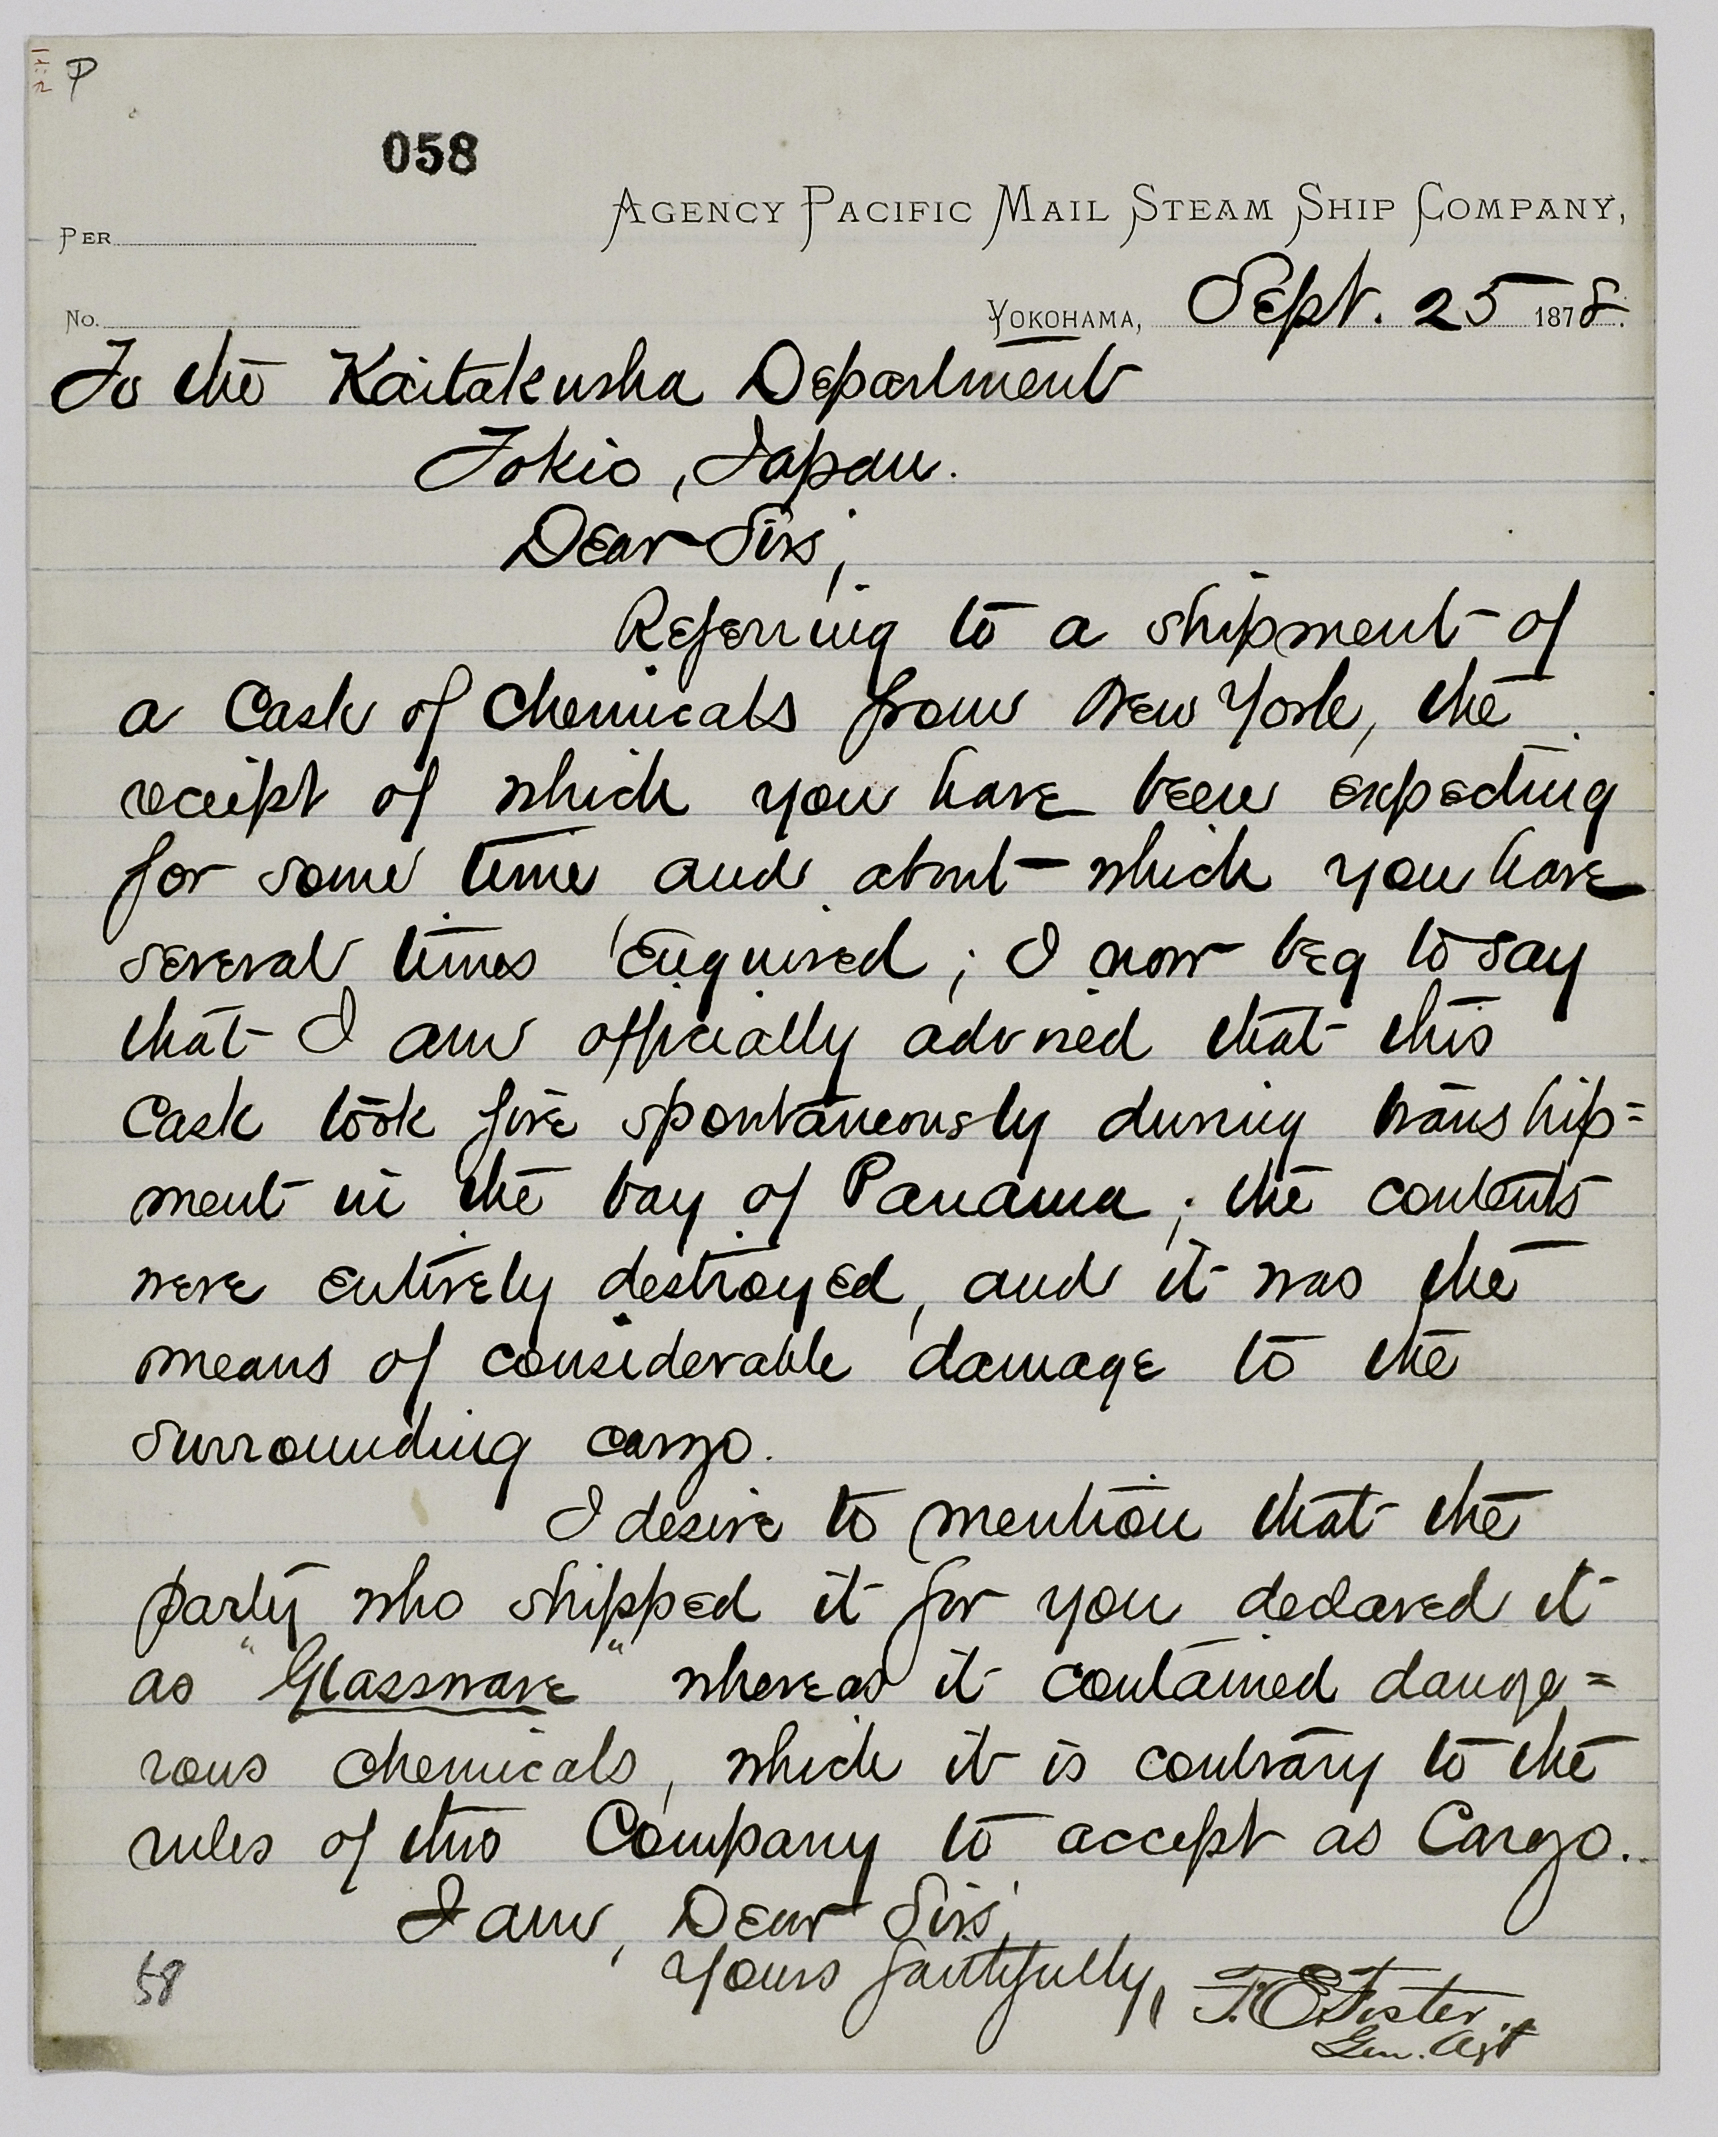 P
058
AGENCY PACIFIC MAIL STEAM SHIP COMPANY,
PER
No.
YOKOHAMA, Sept. 25 1878.
To the Kaitakusha Department
Tokio, Japan.
Dear Sirs,
Referring to a shipment of
a Cask of Chemicals from New York, the
receipt of which you have been expecting
for some time and about which you have
several times enquired; I now beg to say
that I am officially advised that this
Cask took fire spontaneously during tranship=
ment in the bay of Panama; the contents
were entirely destroyed, and it was the
means of considerable damage to the
surrounding cargo.
I desire to mention that the
party who shipped it for you declared it
as "Glassware" whereas it contained dange=
rous chemicals, which it is contrary to the
rules of this Company to accept as Cargo.
I am, Dear Sirs,
Yours faithfully,
F. E. Foster
Gen. Agt
58